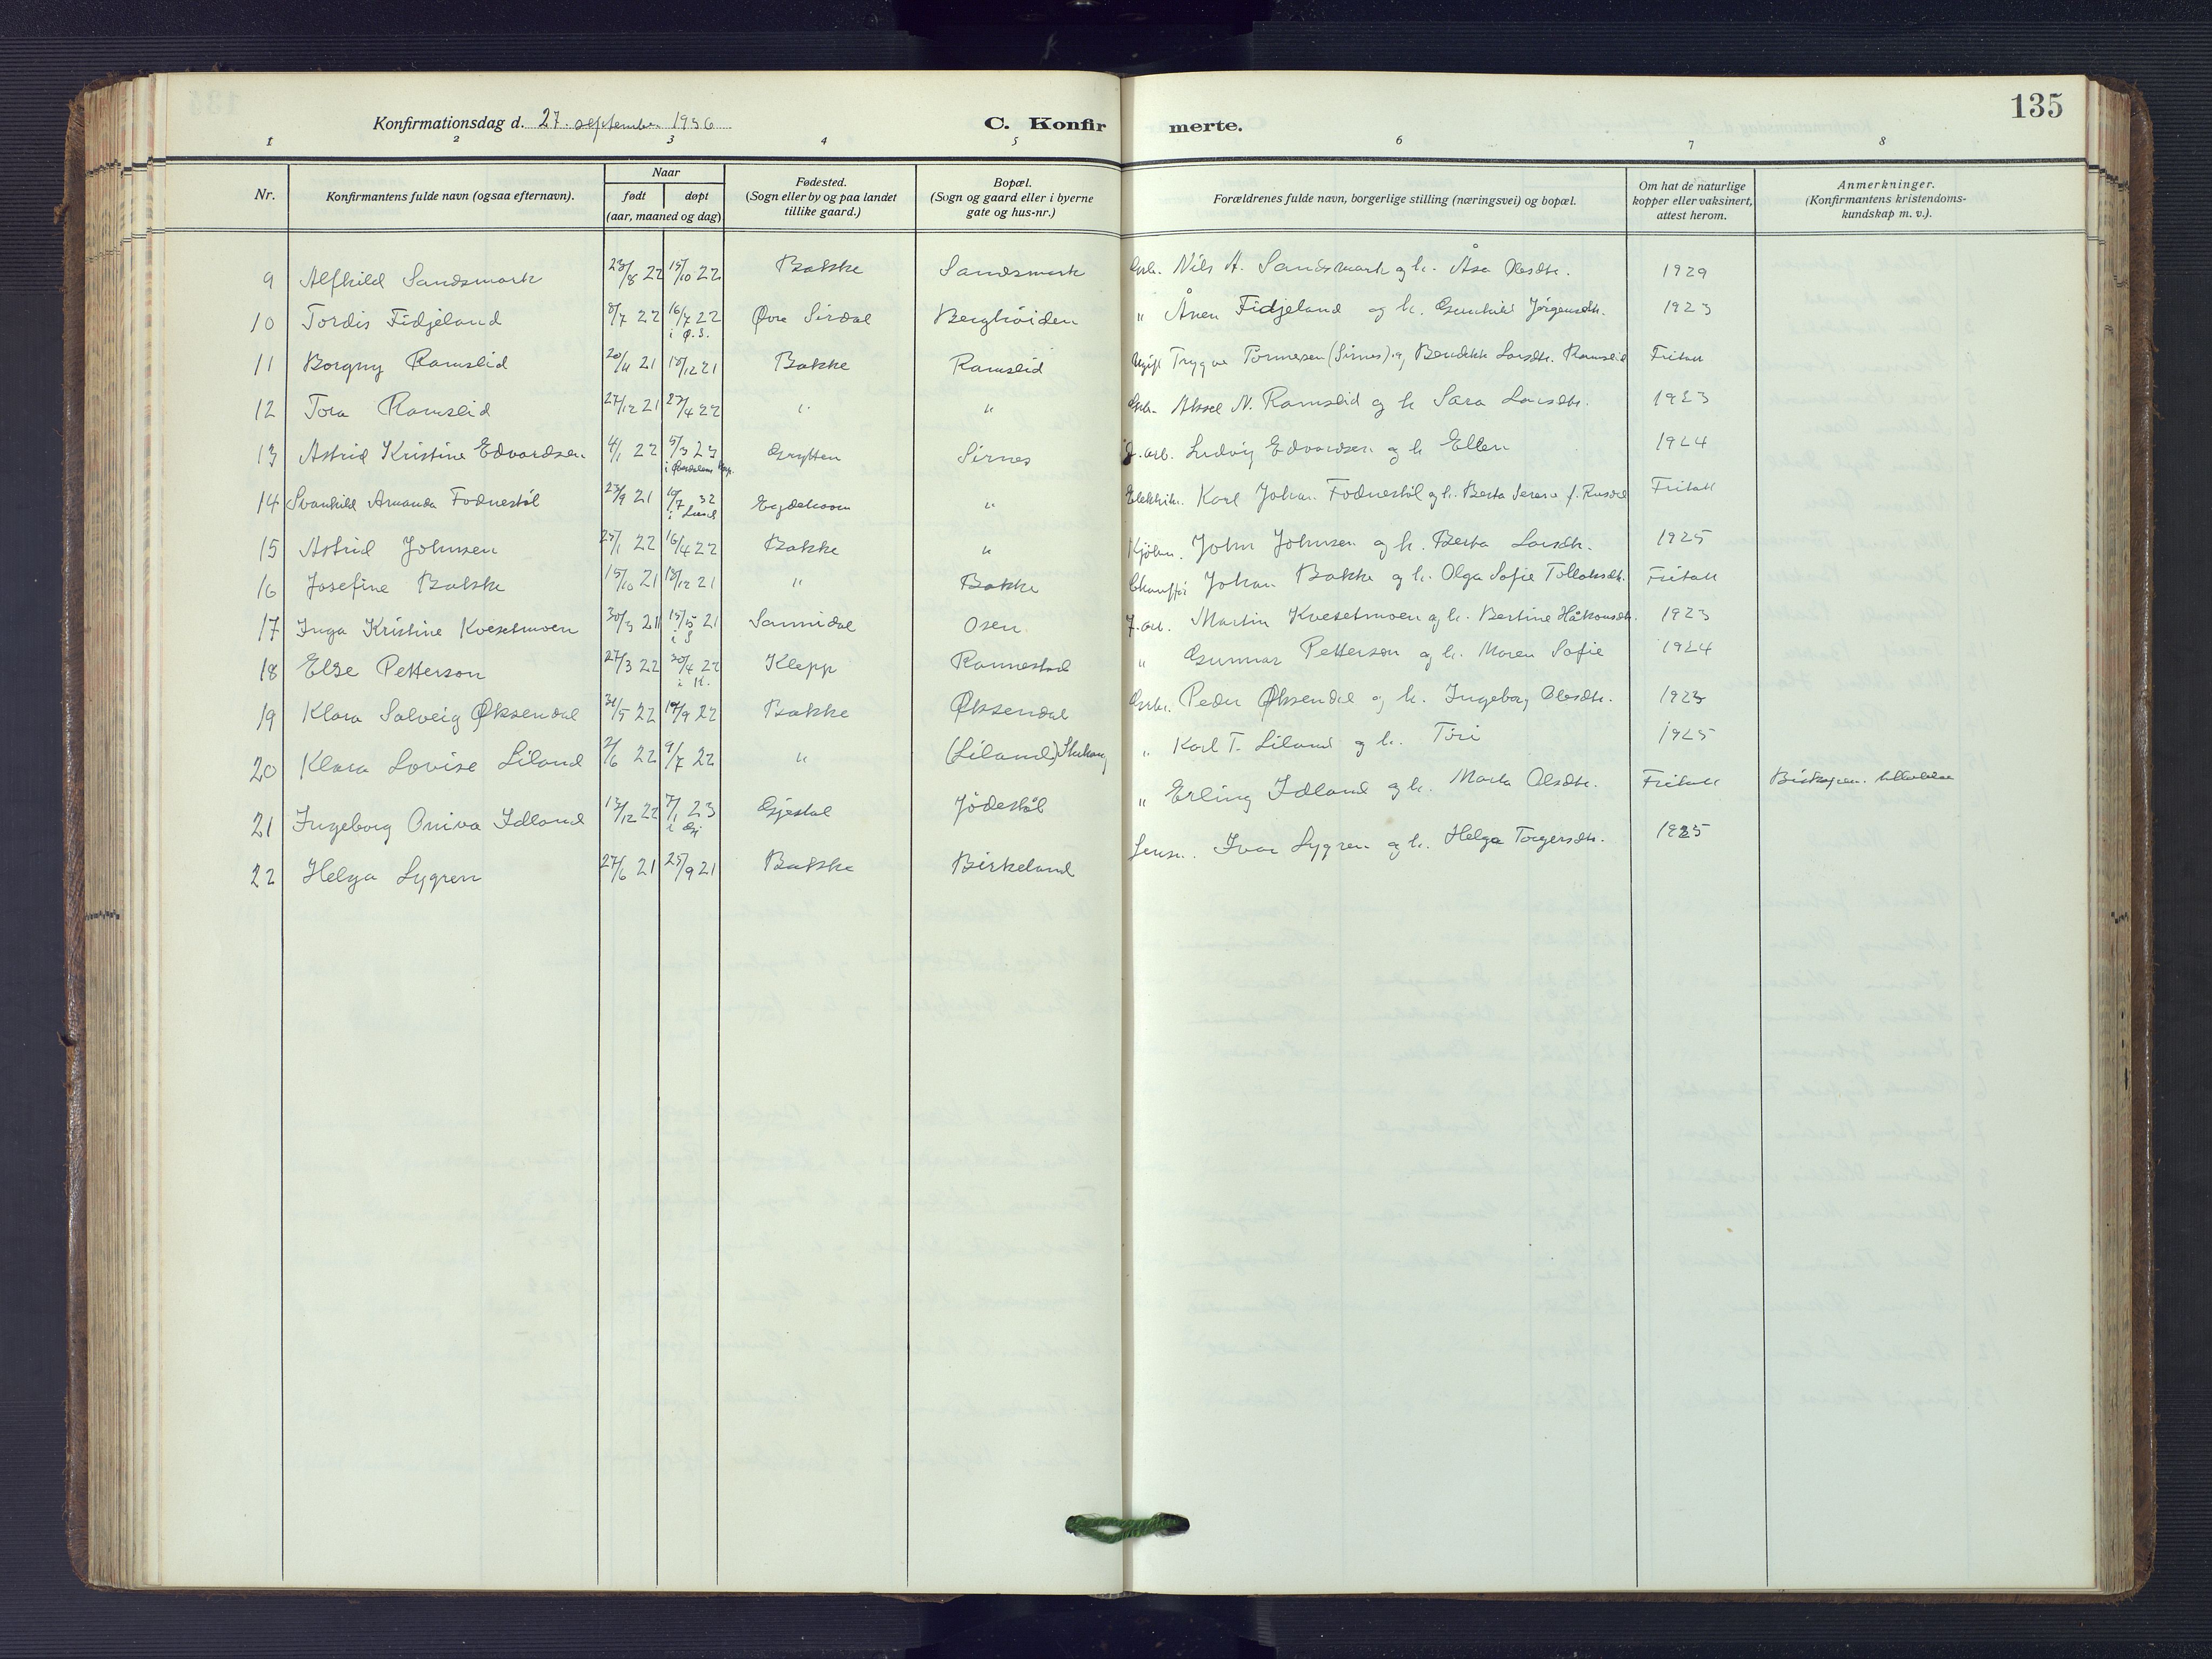 135
Konfirmationsdag d. 27. september 1936
C. Konfirmerte.
1 2 3 4 5 6 7 8
Nr.
Konfirmantens fulde navn (ogsaa efternavn).
Naar
født
døpt
(aar, maaned og dag)
Fødested.
(Sogn eller by og paa landet
tillike gaard.)
Bopæl.
(Sogn og gaard eller i byerne
gate og hus-nr.)
Forældrenes fulde navn, borgerlige stilling (næringsvei) og bopæl.
Om hat de naturlige
kopper eller vaksinert,
attest herom.
Anmerkninger.
(Konfirmantens kristendoms-
kundskap m. v.).
9 Alfhild Sandsmark 23/8 22 15/10 22 Bakke Sandsmark Grbr. Nils A. Sandsmark og h. Åsa Olsdtr. 1929
10 Tordis Fidjeland 8/7 22 16/7 22 Øvre Sirdal Berghöiden " Ånen Fidjeland og h. Gunhild Jörgensdtr. 1923
i Ø.S.
11 Borgny Ramslid 20/11 21 18/12 21 Bakke Ramslid Ugift Trygve Tönnesen (Sirnes) og Bendikte Larsdtr. Ramslid Fritatt
12 Tora Ramslid 27/12 21 27/4 22 " " Grbr. Aksel N. Ramslid og h. Sara Larsdtr. 1923
13 Astrid Kristine Edvardsen 4/1 22 5/3 23 Grytten Sirnes J. arb. Ludvig Edvardsen og h. Ellen 1924
14 Svanhild Amanda Fodnestöl 23/9 21 19/7 32 " Elektrik. Karl Johan Fodnestöl og h. Berta Serene f. Fritatt
i Lund
15 Astrid Johnsen 25/1 22 16/4 22 Bakke " Kjöbm. John Johnsen og h. Berta Larsdtr. 1925
16 Josefine Bakke 15/10 21 18/12 21 " Bakke Chaufför Johan Bakke og h. Olga Sofie Tollaksdtr. Fritatt
17 Inga Kristine Kvesetmoen 30/3 21 15/5 21 Sannidal Osen J. arb. Martin Kvesetmoen og h. Bertine Håkonsdtr. 1923
i S
18 Else Petterson 27/3 22 30/4 22 Klepp Rannestad " Gunnar Petterson og h. Maren Sofie 1924
i K.
19 Klara Solveig Øksendal 31/5 22 17/9 22 Bakke Øksendal Grbr. Peder Øksendal og h. Ingeborg Olsdtr. 1923
20 Klara Lovise Liland 2/6 22 9/7 22 " (Liland) " Karl T. Liland og h. Tiri 1925
21 Ingeborg Oniva Idland 13/12 22 7/1 23 Gjestal Jödestöl " Erling Idland og h. Marta Olsdtr. Fritatt Biskopen. tillatelse
i Gj
22 Helga Lygren 27/6 21 25/9 21 Bakke Birkeland Ivar Lygren og h. Helga Torgersdtr. 1925